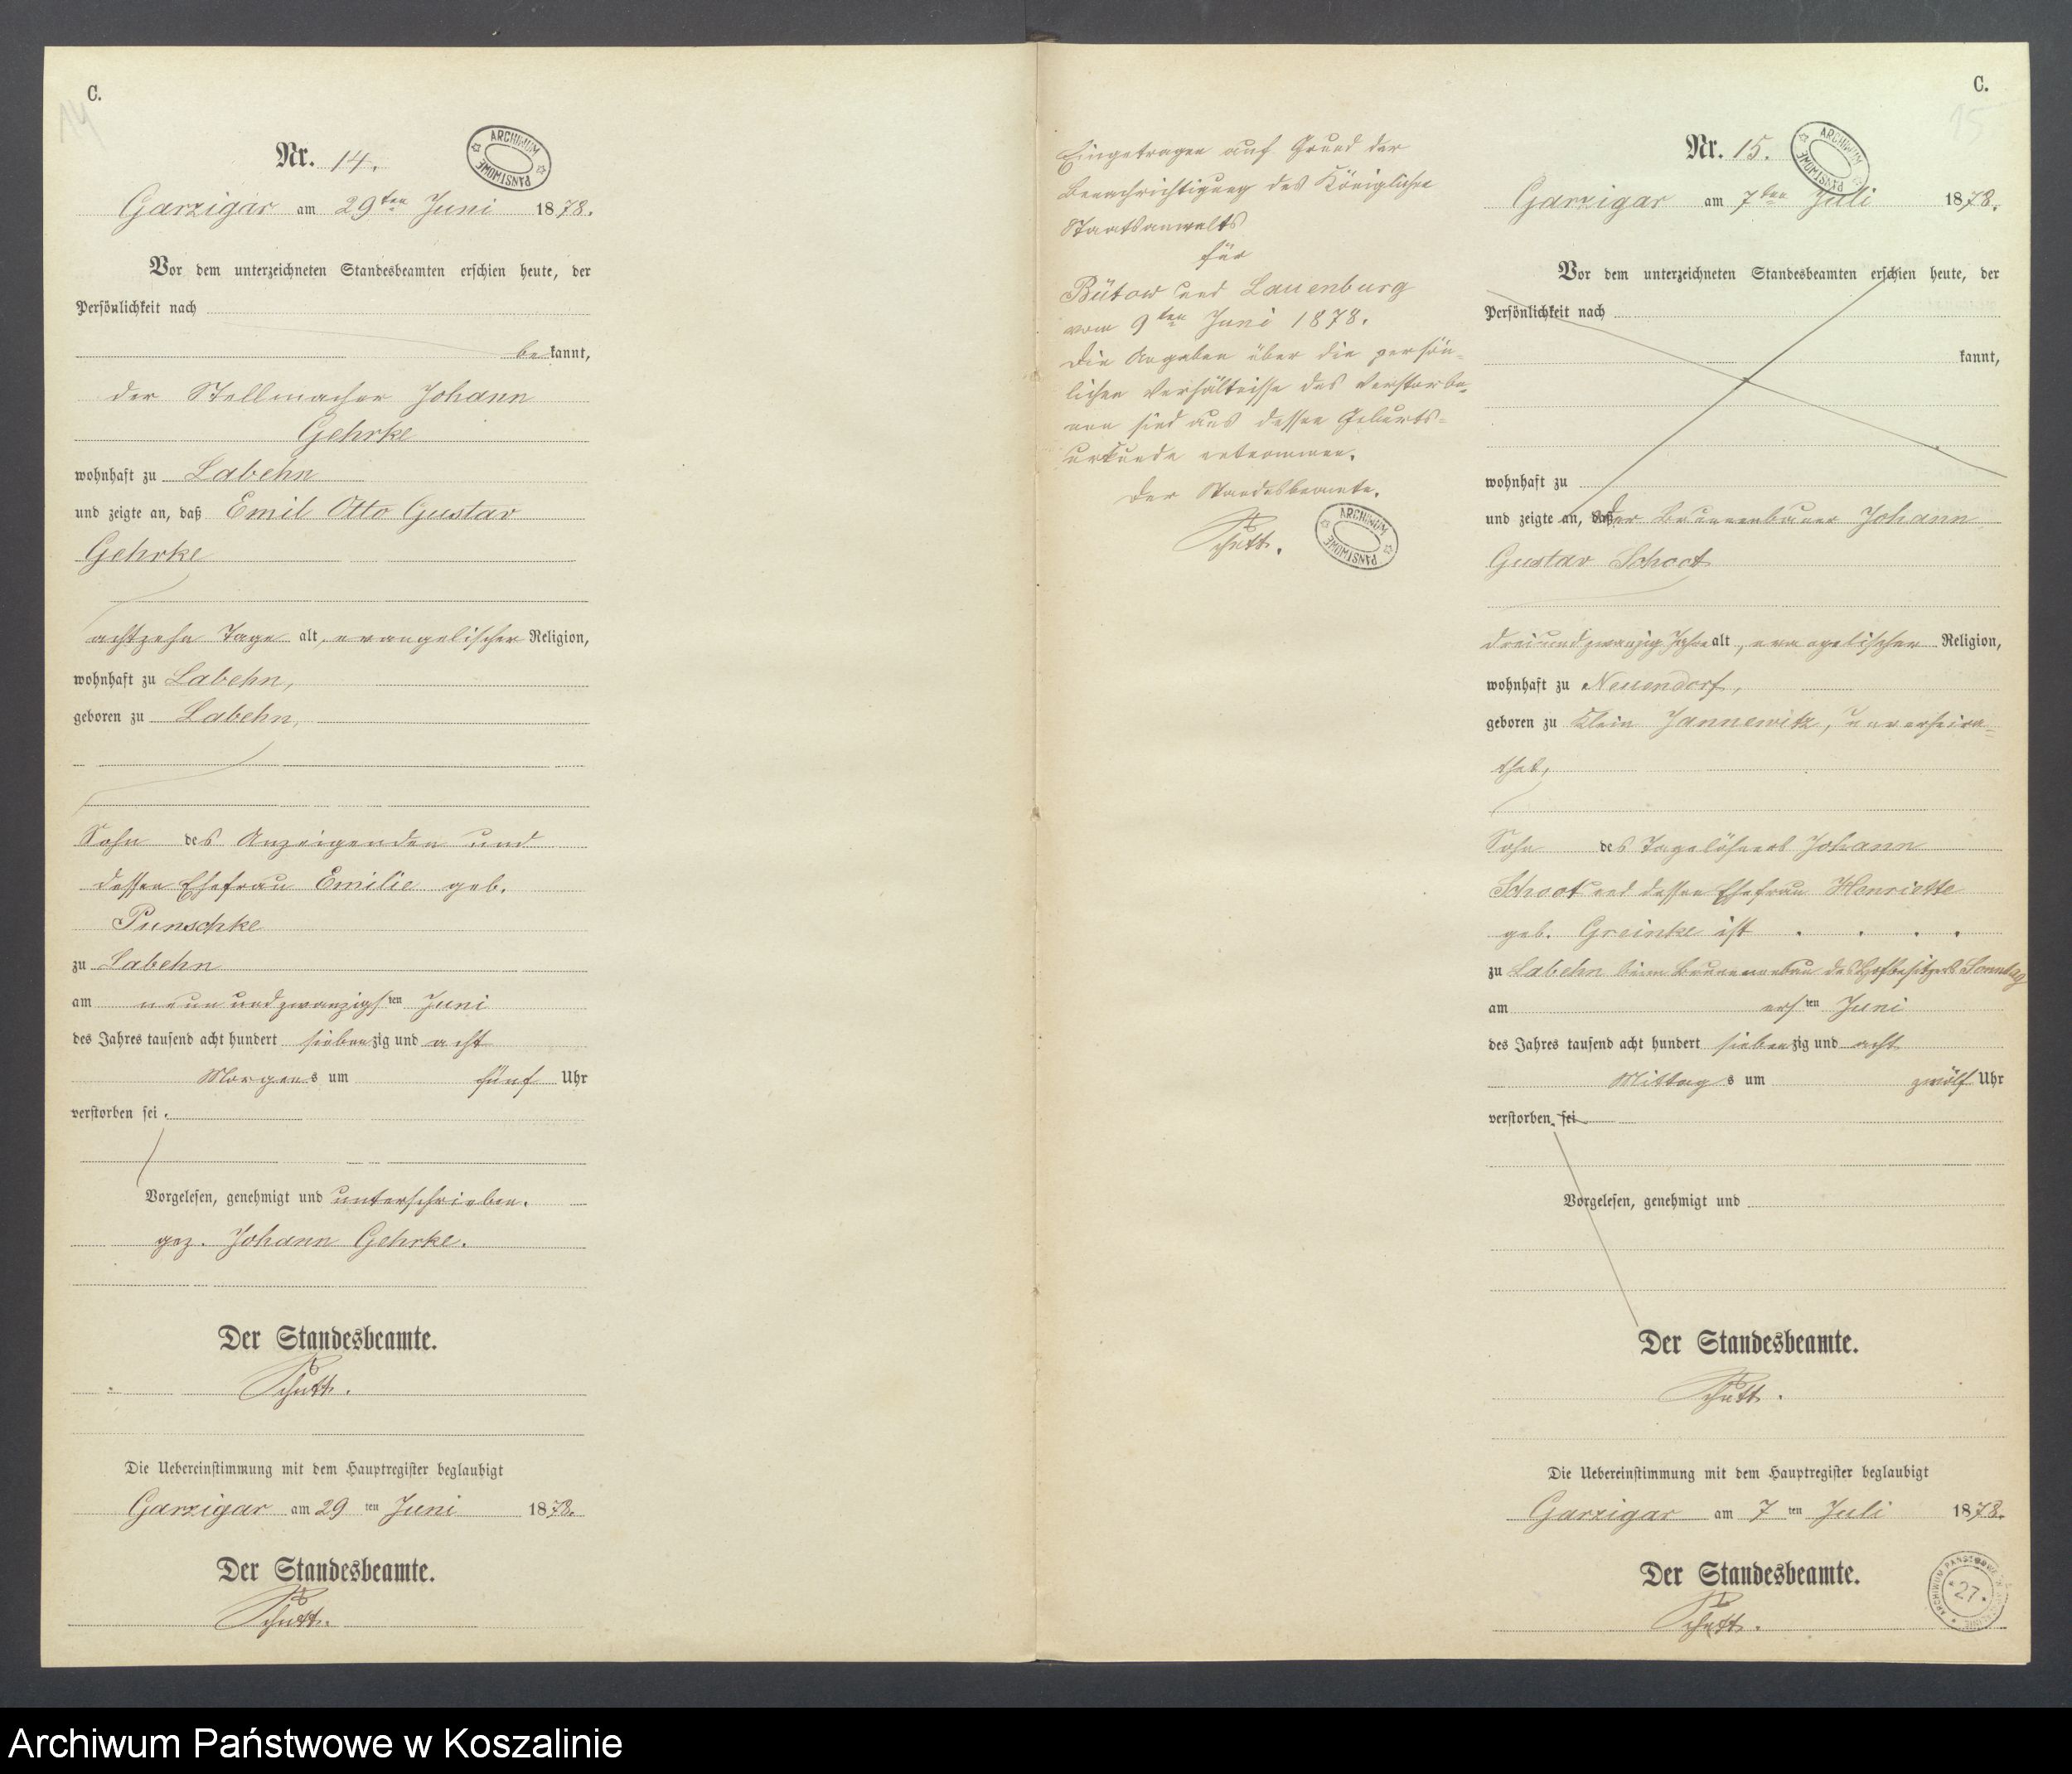 C.
14
Nr. 14.
ARCHIWUM PAŃSTWOWE
Garzigar am 29ten Juni 1878.
Vor dem unterzeichneten Standesbeamten erschien heute, der
Persönlichkeit nach
bekannt,
der Stellmacher Johann
Gehrke
wohnhaft zu Labehn
und zeigte an, daß Emil Otto Gustav
Gehrke
achtzehn Tage alt, evangelischer Religion,
wohnhaft zu Labehn,
geboren zu Labehn,
Sohn des Anzeigenden und
dessen Ehefrau Emilie geb.
Punschke
zu Labehn
am neun und zwanzigsten Juni
des Jahres tausend acht hundert siebenzig und acht
Morgens um fünf Uhr
verstorben sei.
Vorgelesen, genehmigt und unterschrieben.
gez. Johann Gehrke.
Der Standesbeamte.
Schütt.
Die Uebereinstimmung mit dem Hauptregister beglaubigt
Garzigar am 29ten Juni 1878.
Der Standesbeamte.
Schütt.
Eingetragen auf Grund der
Benachrichtigung des Königlichen
Staatsanwalts
für
Bütow und Lauenburg
vom 9ten Juni 1878.
Die Angaben über die persön-
lichen Verhältnisse des Verstorbe-
nen sind aus dessen Geburts-
urkunde entnommen.
Der Standesbeamte.
Schütt.
ARCHIWUM PAŃSTWOWE
C.
15
Nr. 15.
ARCHIWUM PAŃSTWOWE
Garzigar am 7ten Juli 1878.
Vor dem unterzeichneten Standesbeamten erschien heute, der
Persönlichkeit nach
kannt,
wohnhaft zu
und zeigte an, daß der Brunnenbauer Johann
Gustav Schoot
dreiundzwanzig Jahre alt, evangelischer Religion,
wohnhaft zu Neuendorf,
geboren zu Klein Jannewitz, unverheira-
thet,
Sohn des Tagelöhners Johann
Schoot und dessen Ehefrau Henriette
geb. Greinke ist . . . .
zu Labehn beim Brunnenbau des Hofbesitzers Sonntag
am ersten Juni
des Jahres tausend acht hundert siebenzig und acht
Mittags um zwölf Uhr
verstorben. sei
Vorgelesen, genehmigt und
Der Standesbeamte.
Schütt.
Die Uebereinstimmung mit dem Hauptregister beglaubigt
Garzigar am 7ten Juli 1878.
Der Standesbeamte.
Schütt.
ARCHIWUM PAŃSTWOWE
* 27 *
Archiwum Państwowe w Koszalinie